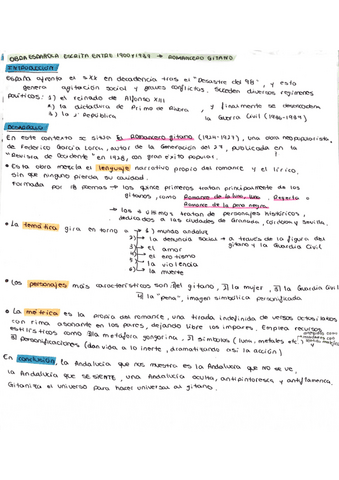 OBRA ESPAÑOLA ESCRITA ENTRE 1900 y 1939 → ROMANCERO GITANO
INTRODUCCIÓN
España afronta el s.XX en decadencia tras el "Desastre del 98", y esto
genera agitación social y graves conflictos. Suceden diversos regímenes
políticos: 1) el reinado de Alfonso XIII
2) la dictadura de Primo de Rivera , y finalmente se desencadena
3) la 2ª República la Guerra Civil (1936-1939)
DESARROLLO
En este contexto se sitúa el Romancero gitano (1924-1927), una obra neopopularista
de Federico García Lorca, autor de la Generación del 27, publicada en la
"Revista de Occidente" en 1928, con gran éxito popular.
• Esta obra mezcla el lenguaje narrativo propio del romance y el lírico,
sin que ninguno pierda su calidad.
Formada por 18 poemas → los quince primeros tratan principalmente de los
gitanos, como Romance de la luna, luna, Reyerta o
Romance de la pena negra.
→ los 3 últimos tratan de personajes históricos,
dedicados a las ciudades de Granada, Córdoba y Sevilla.
• La temática gira en torno a → 1) mundo andaluz
2) la denuncia social → a través de la figura del
3) el amor gitano y la Guardia Civil
4) el erotismo
5) la violencia
6) la muerte
• Los personajes más característicos son 1) el gitano, 2) la mujer, 3) la Guardia Civil
4) la "pena", imagen simbólica personificada
• La métrica es la propia del romance, una tirada indefinida de versos octosílabos
con rima asonante en los pares, dejando libre los impares. Emplea recursos
estilísticos como 1) la metáfora gongorina, 2) símbolos (luna, metales etc.)
3) personificaciones (dan vida a lo inerte, dramatizando así la acción)
En conclusión, la Andalucía que nos muestra es la Andalucía que NO se ve,
la Andalucía que SE SIENTE, una Andalucía oculta, antipintoresca y antiflamenca.
Gitaniza el universo para hacer universal al gitano.